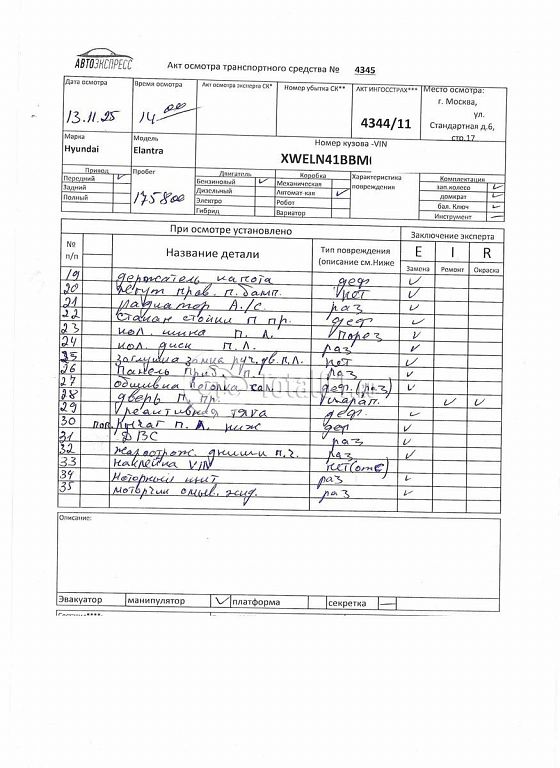 АВТОЭКСПРЕСС
Акт осмотра транспортного средства № 4345
Дата осмотра
13.11.25
Время осмотра
14 00
Акт осмотра эксперта СК*
Номер убытка СК**
АКТ ИНГОССТРАХ***
4344/11
Место осмотра:
г. Москва,
ул.
Стандартная д.6,
стр.17
Марка
Hyundai
Модель
Elantra
Номер кузова -VIN
XWELN41BBM
Привод
Передний ✓
Задний
Полный
Пробег
175800
Двигатель
Бензиновый ✓
Дизельный
Электро
Гибрид
Коробка
Механическая
Автомат-кая ✓
Робот
Вариатор
Характеристика повреждения
Комплектация
зап.колесо ✓
домкрат ✓
бал. Ключ ✓
Инструмент —
При осмотре установлено
Заключение эксперта
№ п/п
Название детали
Тип повреждения (описание см.Ниже
E I R
Замена Ремонт Окраска
19 держатель капота деф ✓
20 жгут пров. п. бамп. нет ✓
21 радиатор А/с. раз ✓
22 стакан стойки п пр. деф ✓
23 кол. шина п. л. порез ✓
24 кол. диск п. л. раз ✓
25 заглушка замка руч. дв. п.л. нет ✓
26 панель приб. п раз ✓
27 обшивка потолка сал деф. (раз) ✓
28 дверь п. пр. царап. ✓ ✓
29 реактивная тяга деф. ✓
30 поп. рычаг п. л. ниж деф ✓
31 ДВС раз ✓
32 п.ч. раз ✓
33 наклейка VIN нет ✓
34 моторный щит раз ✓
35 моторчик омыв. жид. раз ✓
Описание:
Эвакуатор манипулятор ✓ платформа секретка —